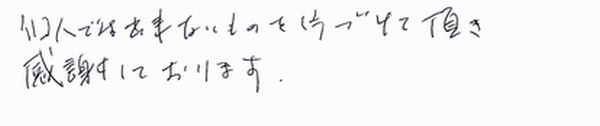 個人では出来ないものを片づけて頂き
感謝しております.